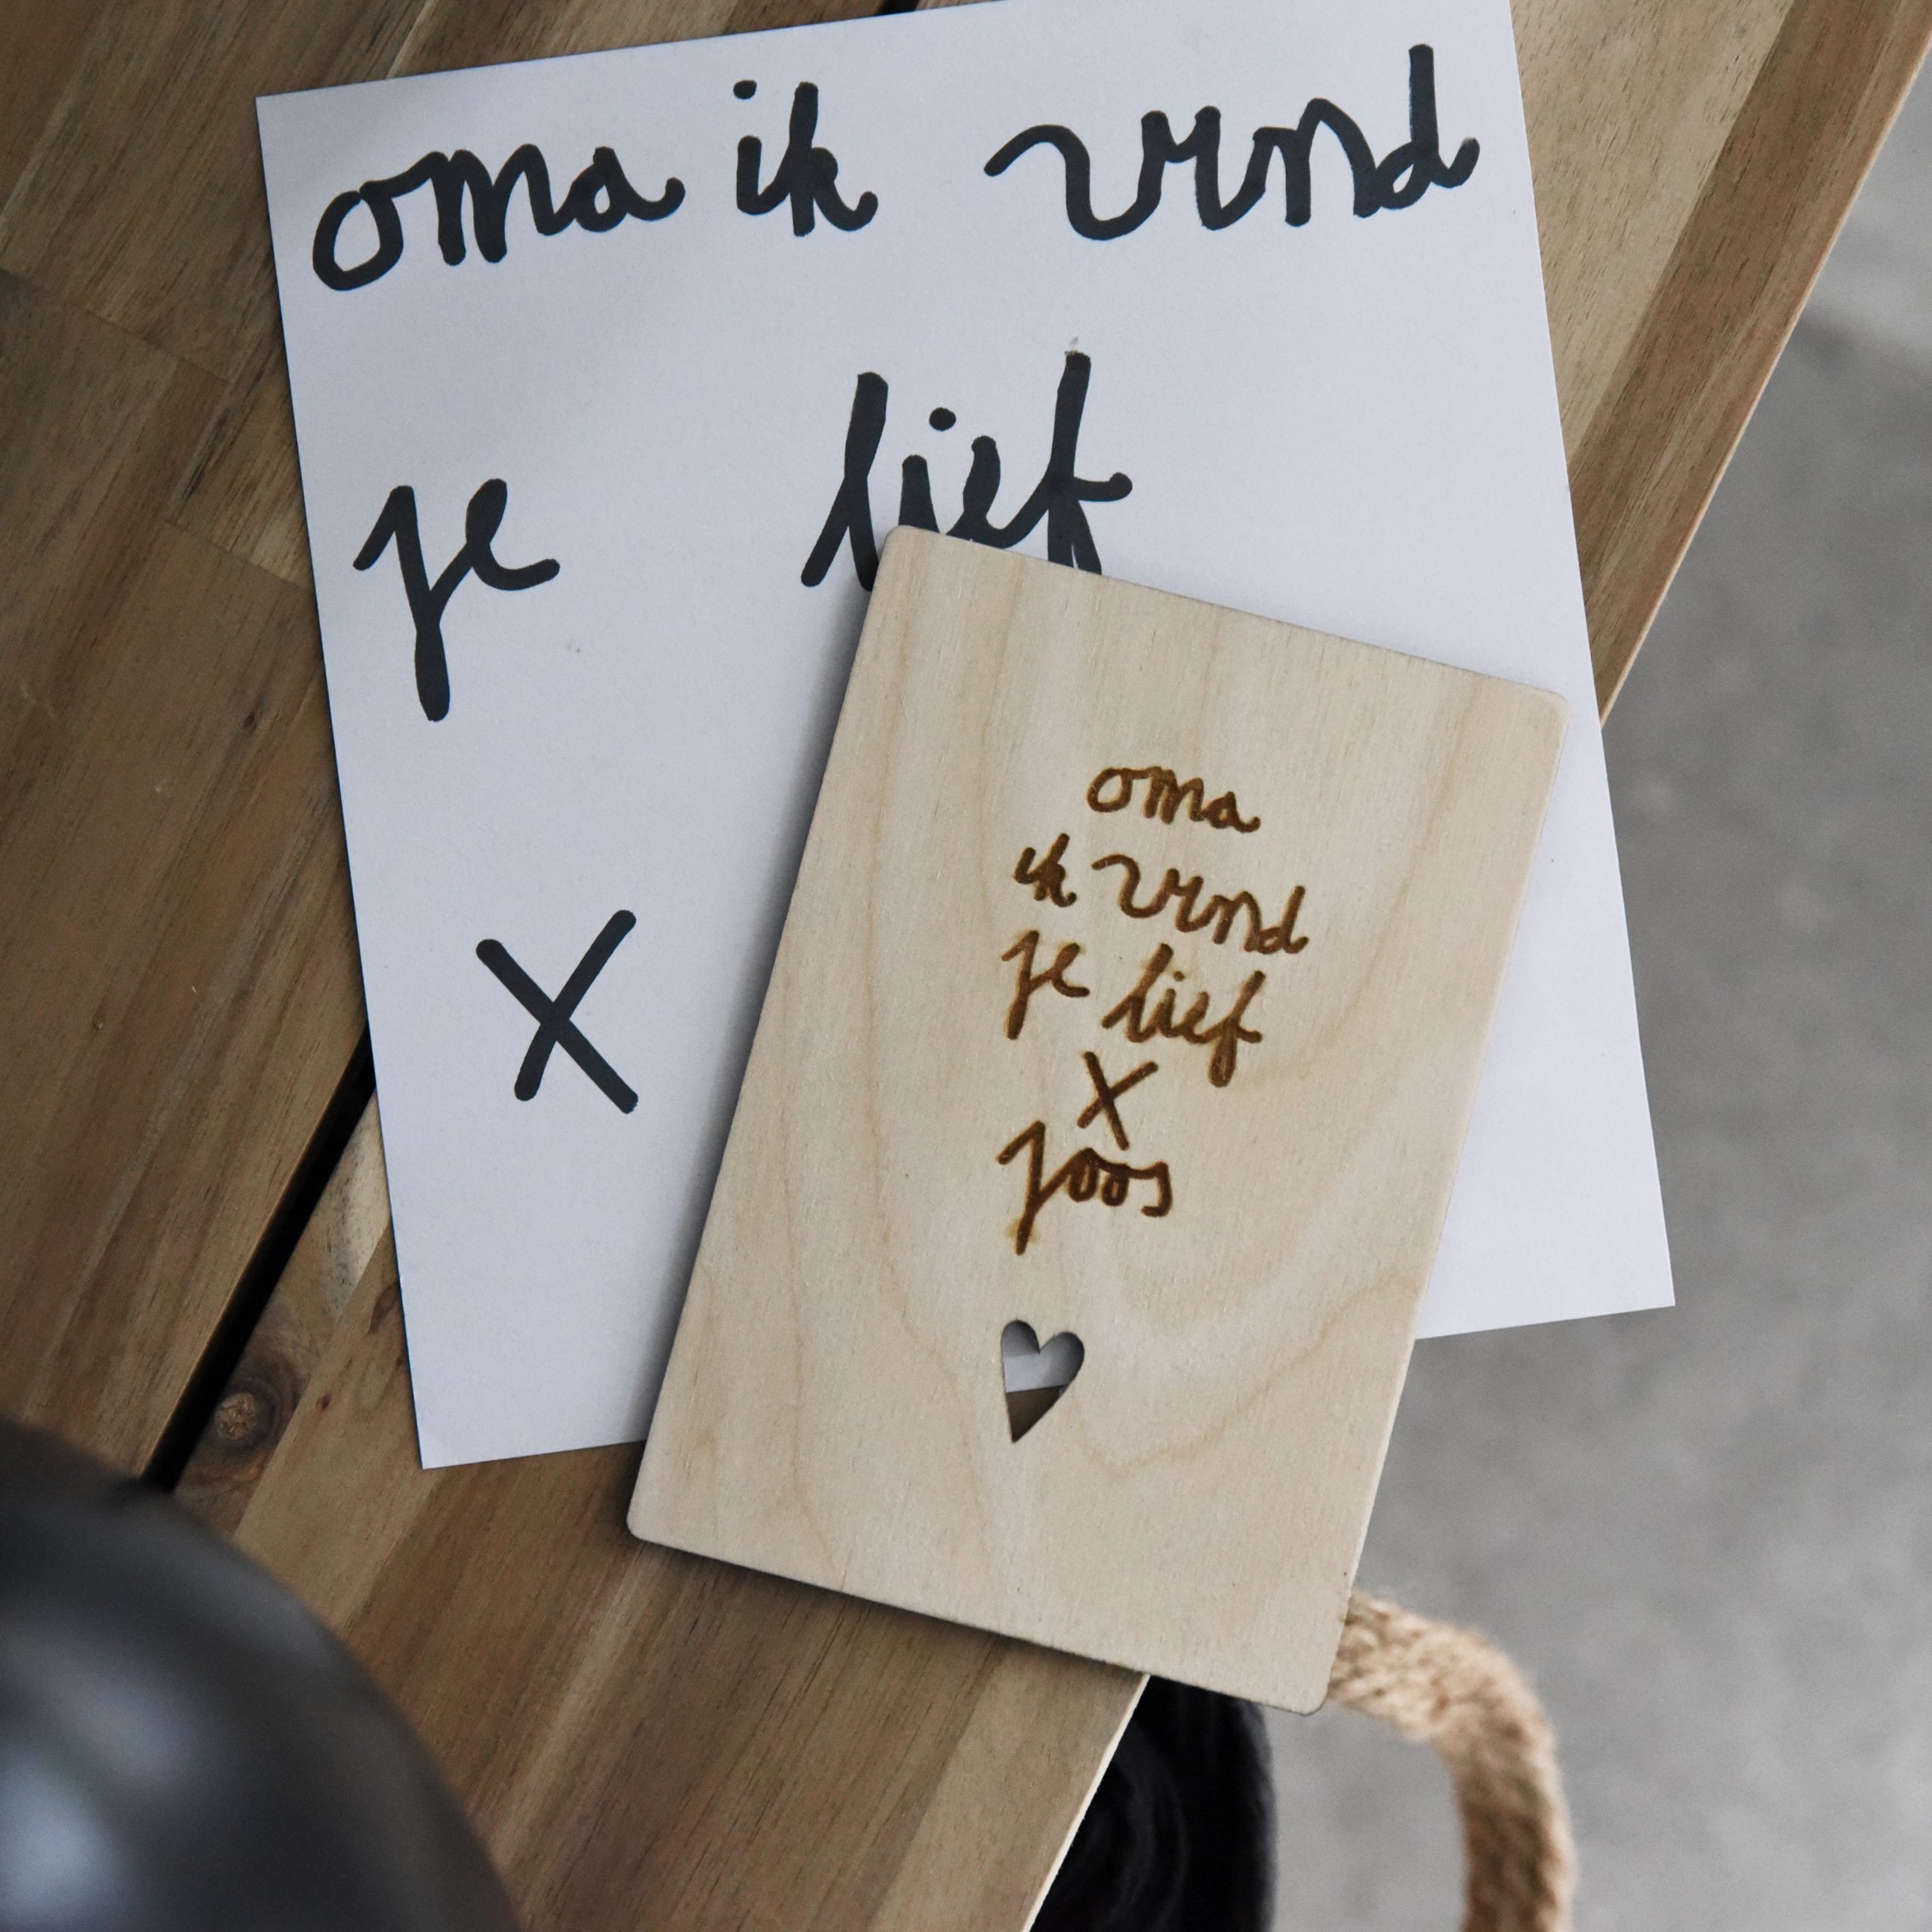 oma ik vind
je lief
x
oma
ik vind
je lief
x
joos